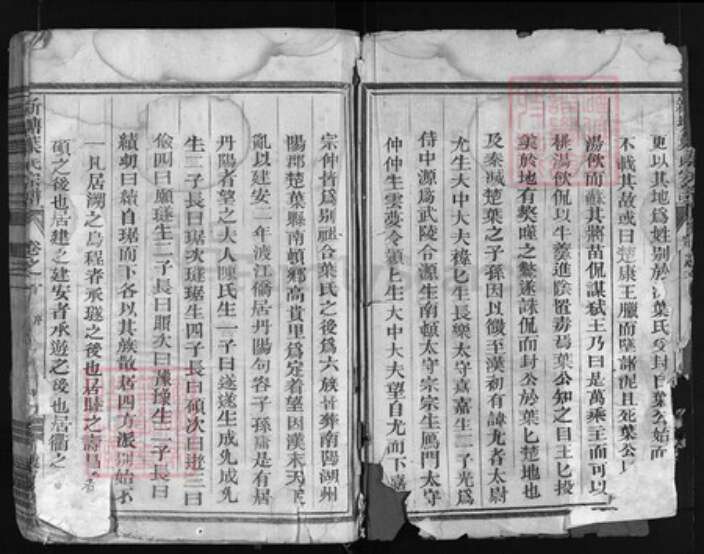 更以其地爲姓別於沈葉氏受封自葉公始而
不載其故或曰楚康王臘而墜諸泥且死葉公以
湯飲而蘇其將苗侃謀弒王乃曰是萬乘主而可以
桃湯飲侃以牛羹進陰置毒焉葉公知之自王匕投
羹於地有獒嘷之斃遂誅侃而封公於葉匕楚地也
及秦滅楚葉之子孫因以饑至漢初有諱尤者太尉
尤生大中大夫祿匕生長樂太守真嘉生二子光爲
侍中源爲武陵令源生南頓太守宗宗生鴈門太守
仲仲生雲夢令頴匕生大中大夫望自尤而下嘉
宗仲皆爲別祖合葉氏之後爲六族皆葬南陽湖州
陽郡楚葉縣南頓鄉高貴里爲定着望因漢末天
亂以建安二年渡江僑居丹陽句容子孫庸是有居
丹陽者望之夫人陳氏生一子曰遂遂生成先成先
生二子長曰琚次璲琚生四子長曰碩次曰遊三曰
儉四曰願璲生二子長曰顒次曰豫豫生二子長曰
績朝曰績自琚而下各以其族散居四方派別始
一凡居湖之烏程者承璲之後也居睦之壽昌者
碩之後也居建之建安者承遊之後也居衢之
新塘葉氏宗譜 卷之首 序